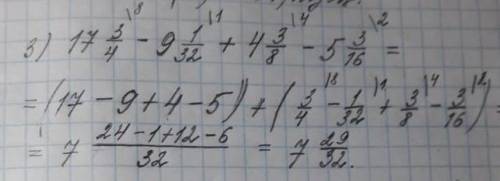 3) 17 3/4 \8 - 9 1/32 \1 + 4 3/8 \4 - 5 3/16 \2 =
= (17 - 9 + 4 - 5) + (3/4 \8 - 1/32 \1 + 3/8 \4 - 3/16 \2) =
= 7 (24 - 1 + 12 - 6)/32 = 7 29/32.